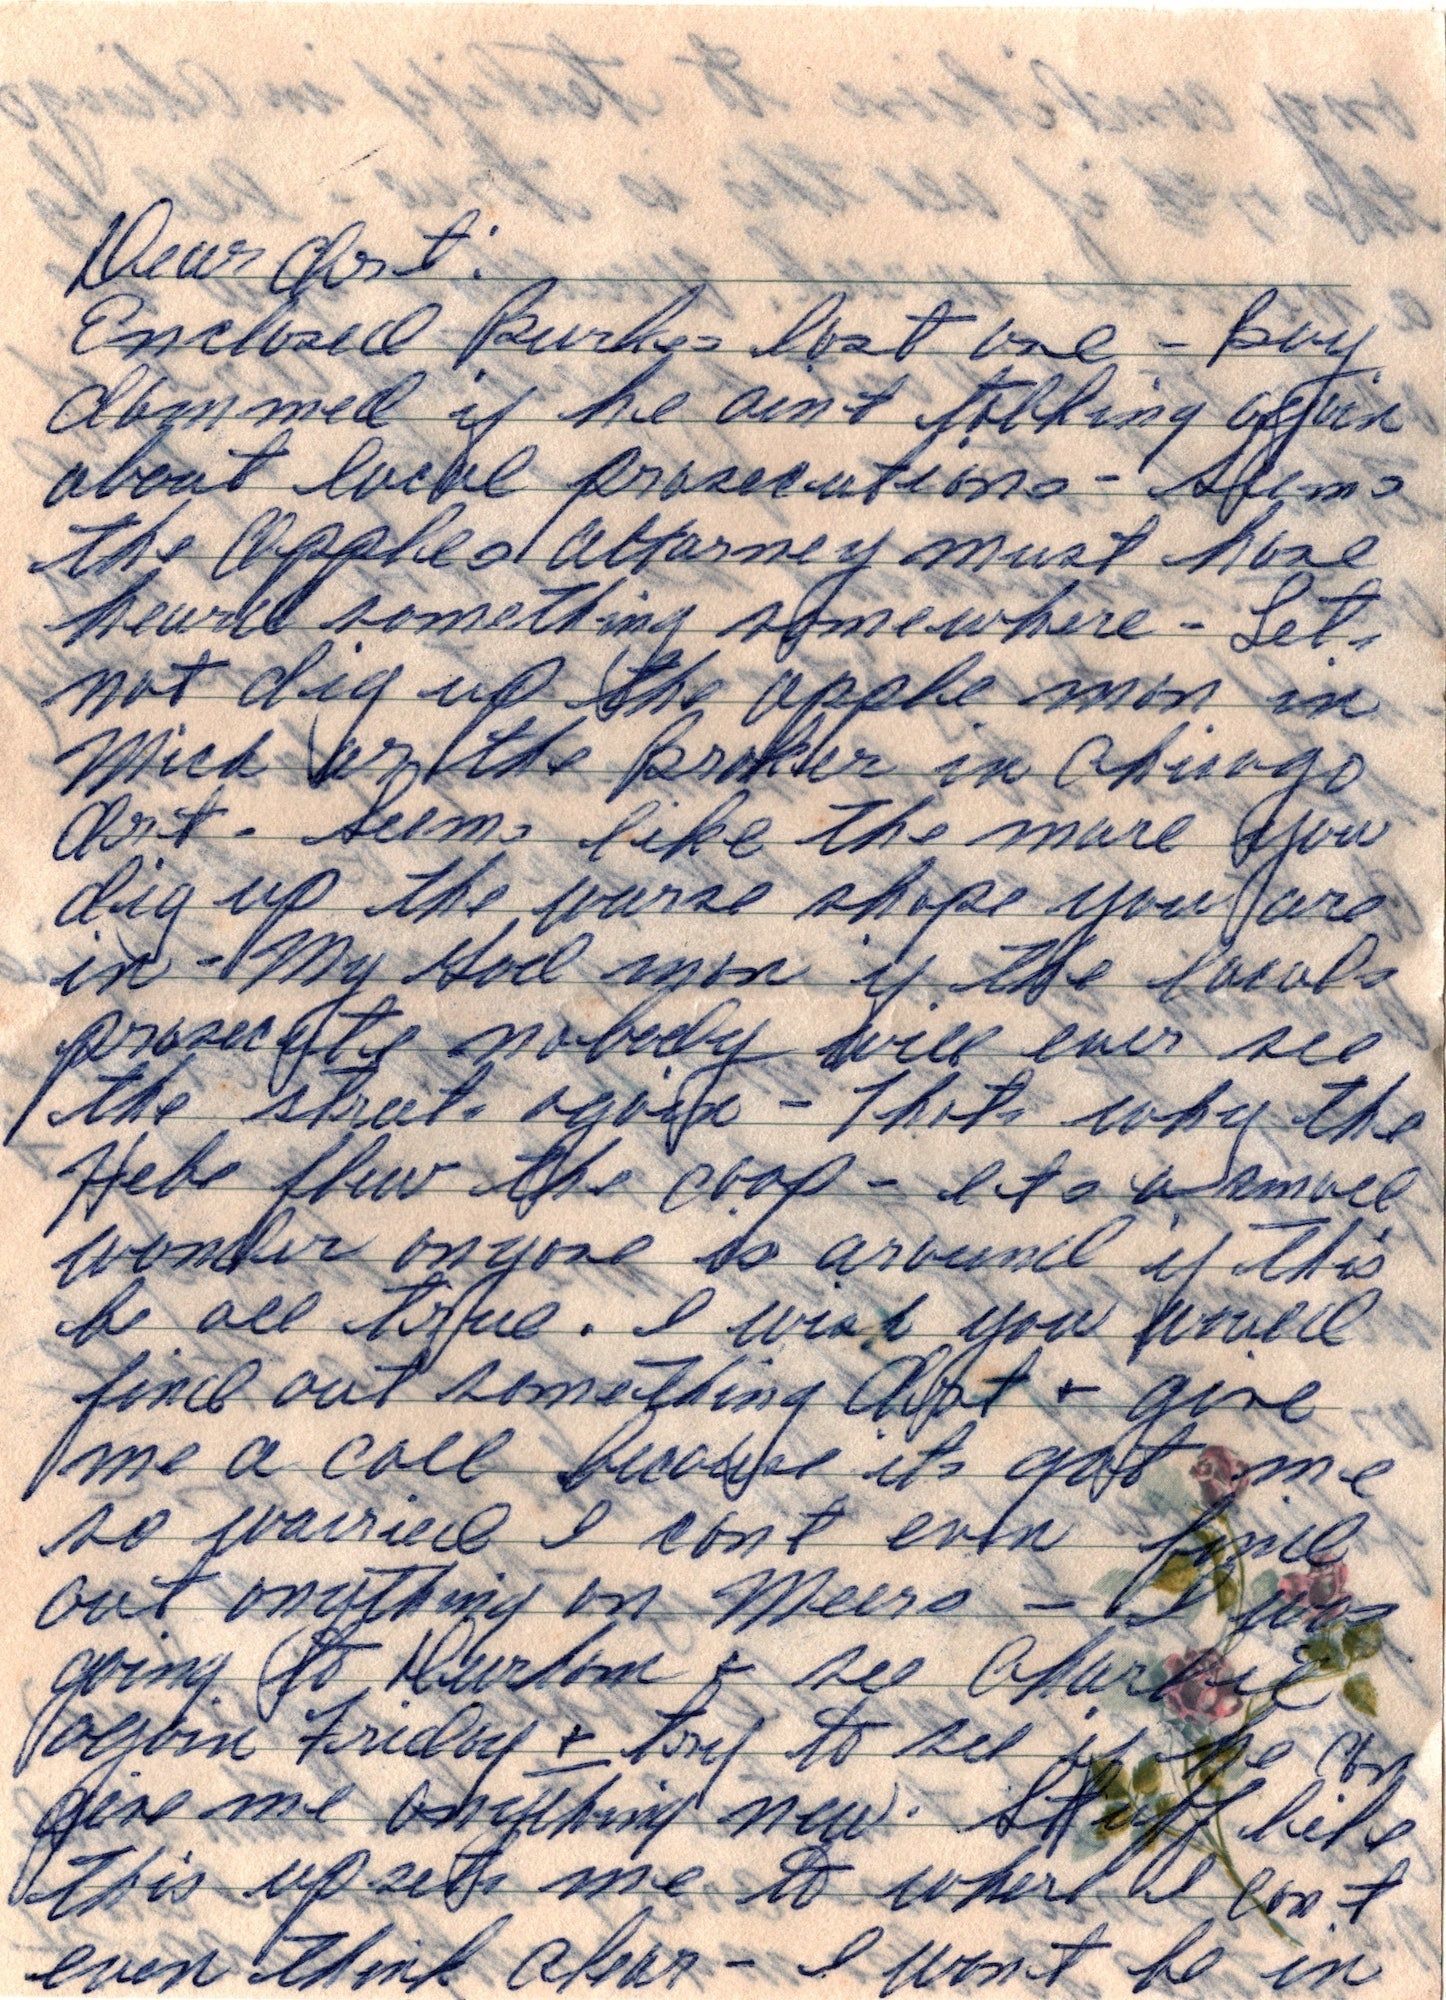 Dear Art:
Enclosed Burkes last one - Boy
dammed if he aint talking again
about local prosecutions - Seems
the Apples attorney must have
heard something somewhere - Lets
not dig up the apple man in
Mich or the Broker in Chicago
Art - Seems like the more you
dig up the worse shape you are
in - My God man if the locals
prosecute nobody will ever see
the streets again - Thats why the
Hebe flew the coop - Its a small
wonder anyone is around if this
be all true. I wish you would
find out something Art + give
me a call because its got me
so worried I cant even find
out anything on Meers - I was
going to Durham + see Charlie
again Friday + try to see if he can
give me anything new. Stuff like
this upsets me to where I cant
even think clear - I wont be in